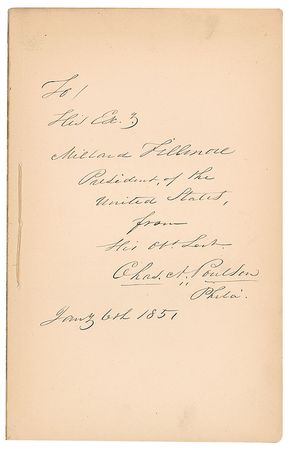 To!
His Ex.y
Millard Fillmore
President, of the
United States,
from
His Obt Sevt
Chas. A. Poulson
Phila.
Jany 6th 1851